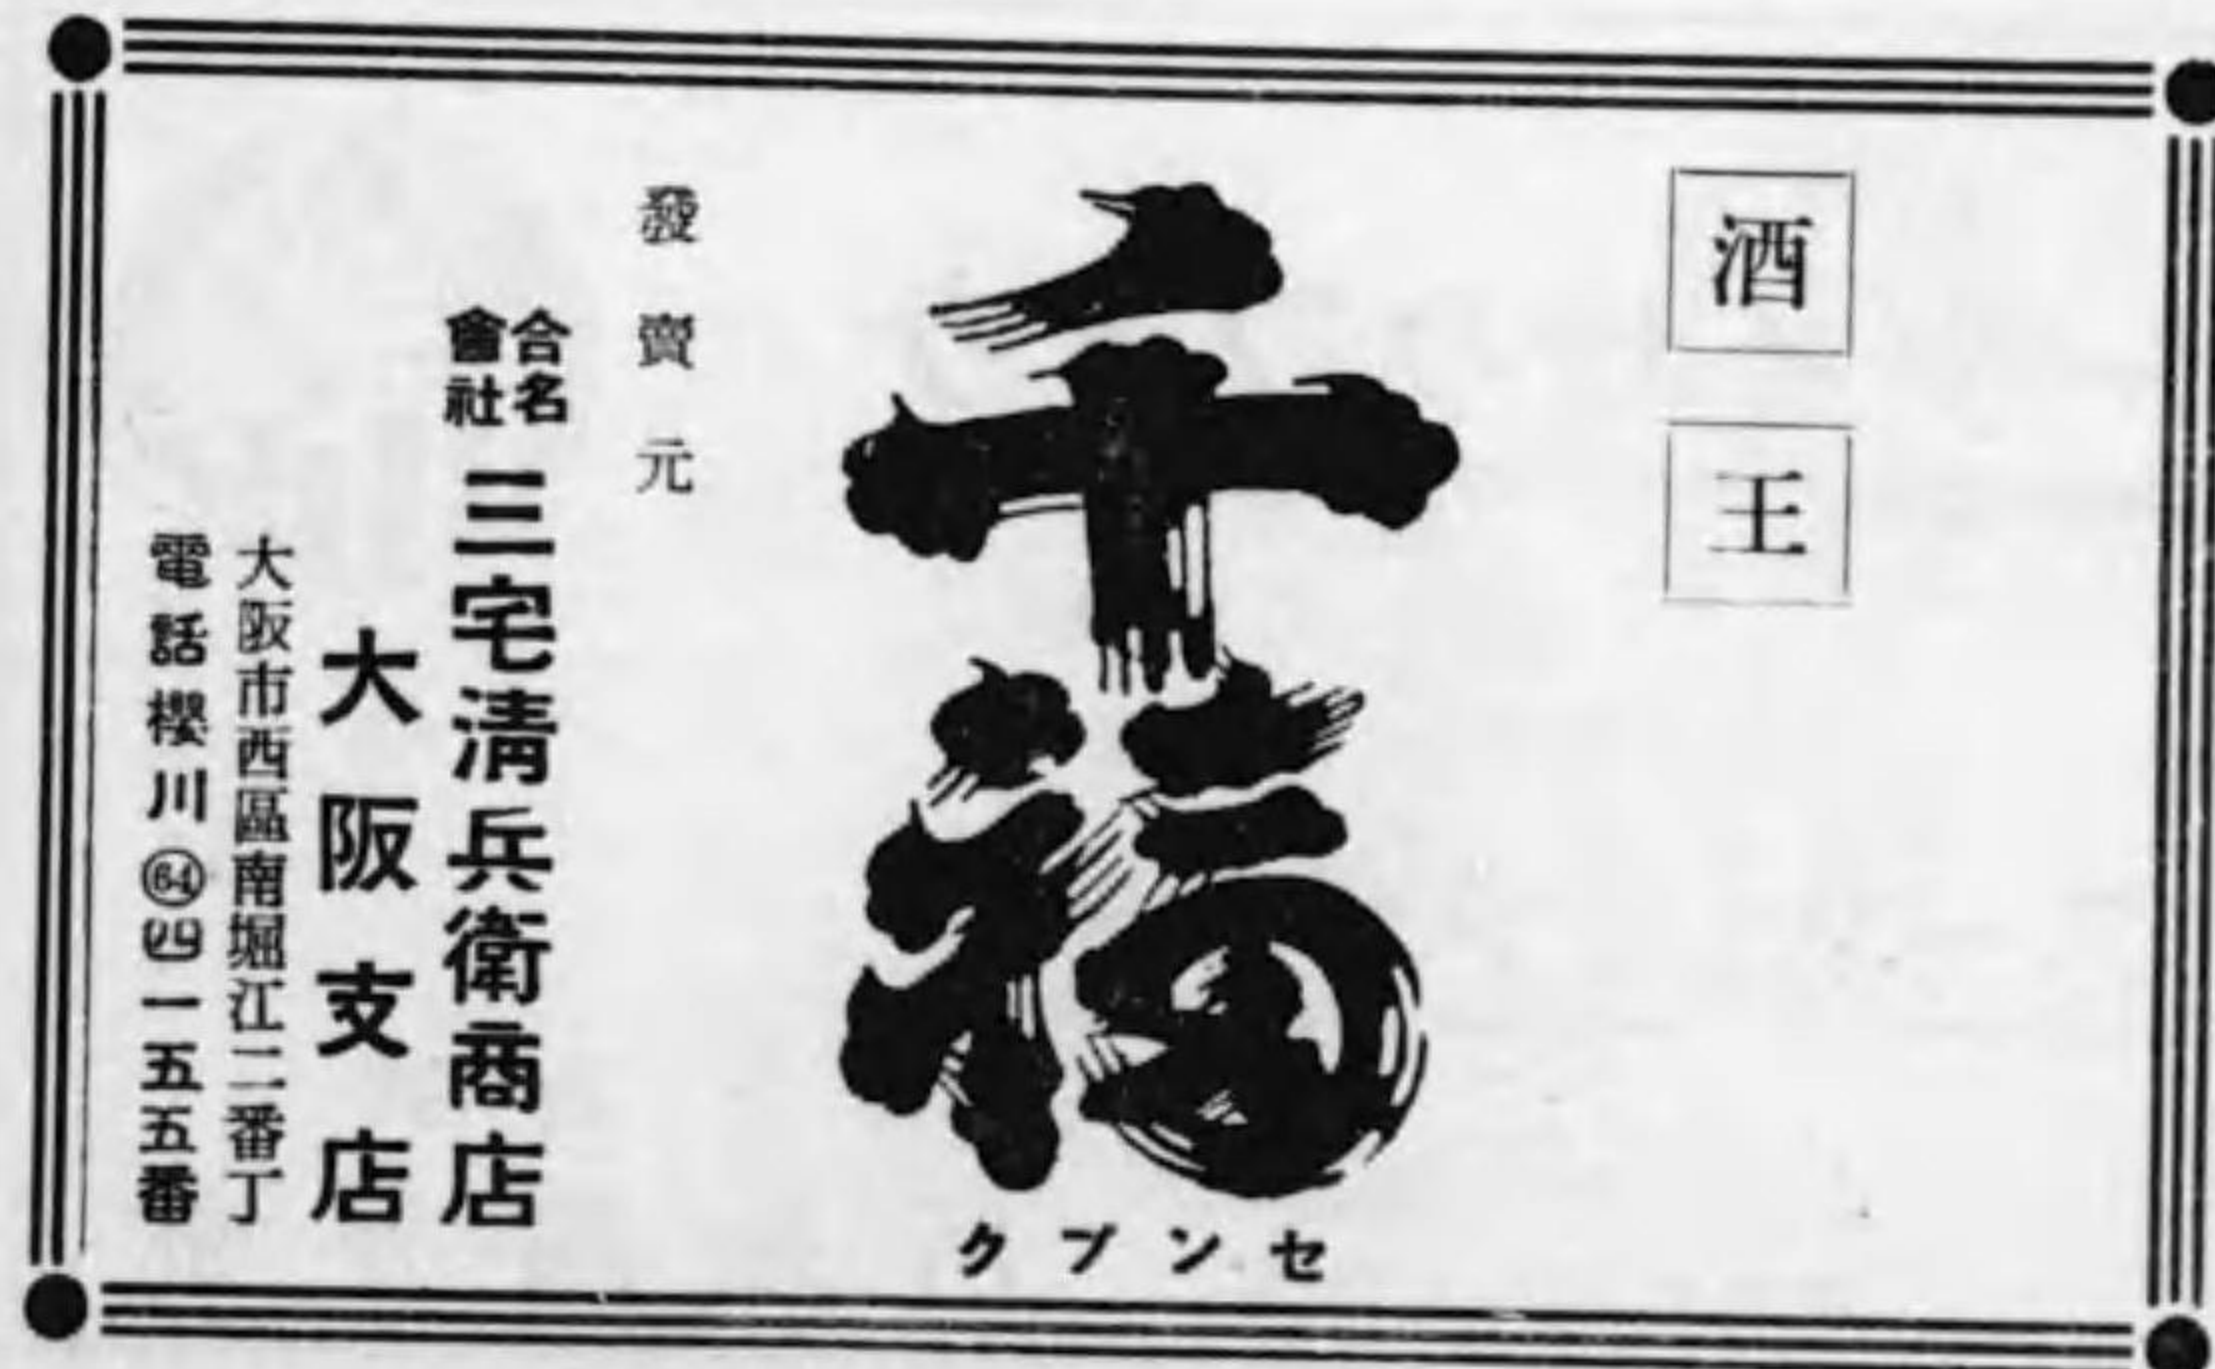 酒王
千福
センプク
發賣元
合名會社 三宅淸兵衛商店
大阪支店
大阪市西區南堀江二番丁
電話櫻川64四一五五番